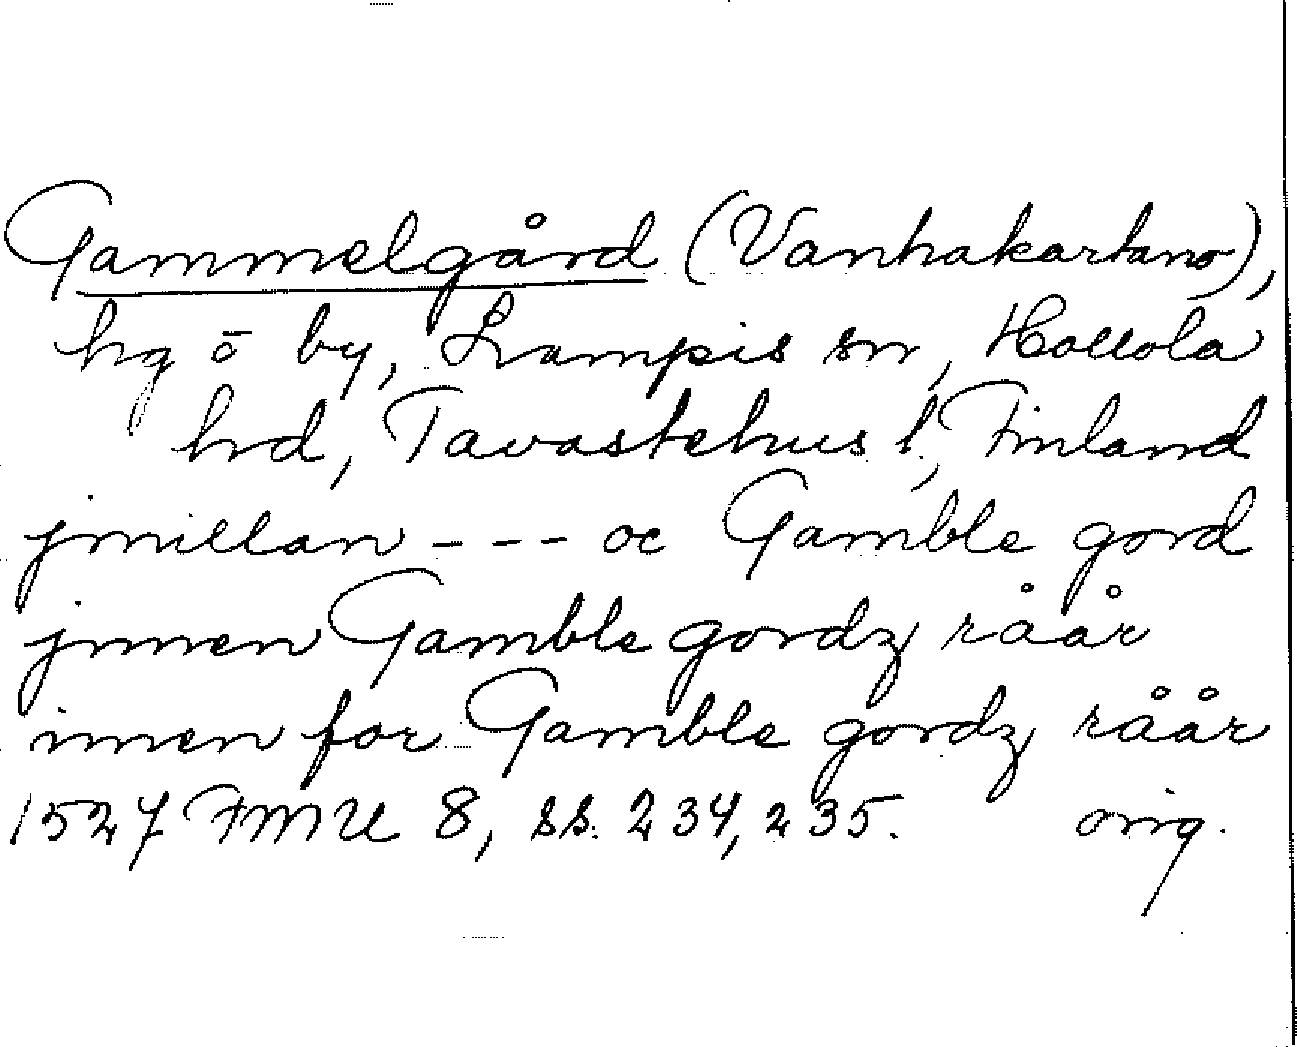 Gammelgård (Vanhakartano),
hg ō by, Lampis sn, Hollola
hrd, Tavastehus l, Finland
jmillan - - - oc Gamble gord
jnnen Gamble gordz råår
innen for Gamble gordz råår
1527 FMU 8, ss. 234, 235. orig.